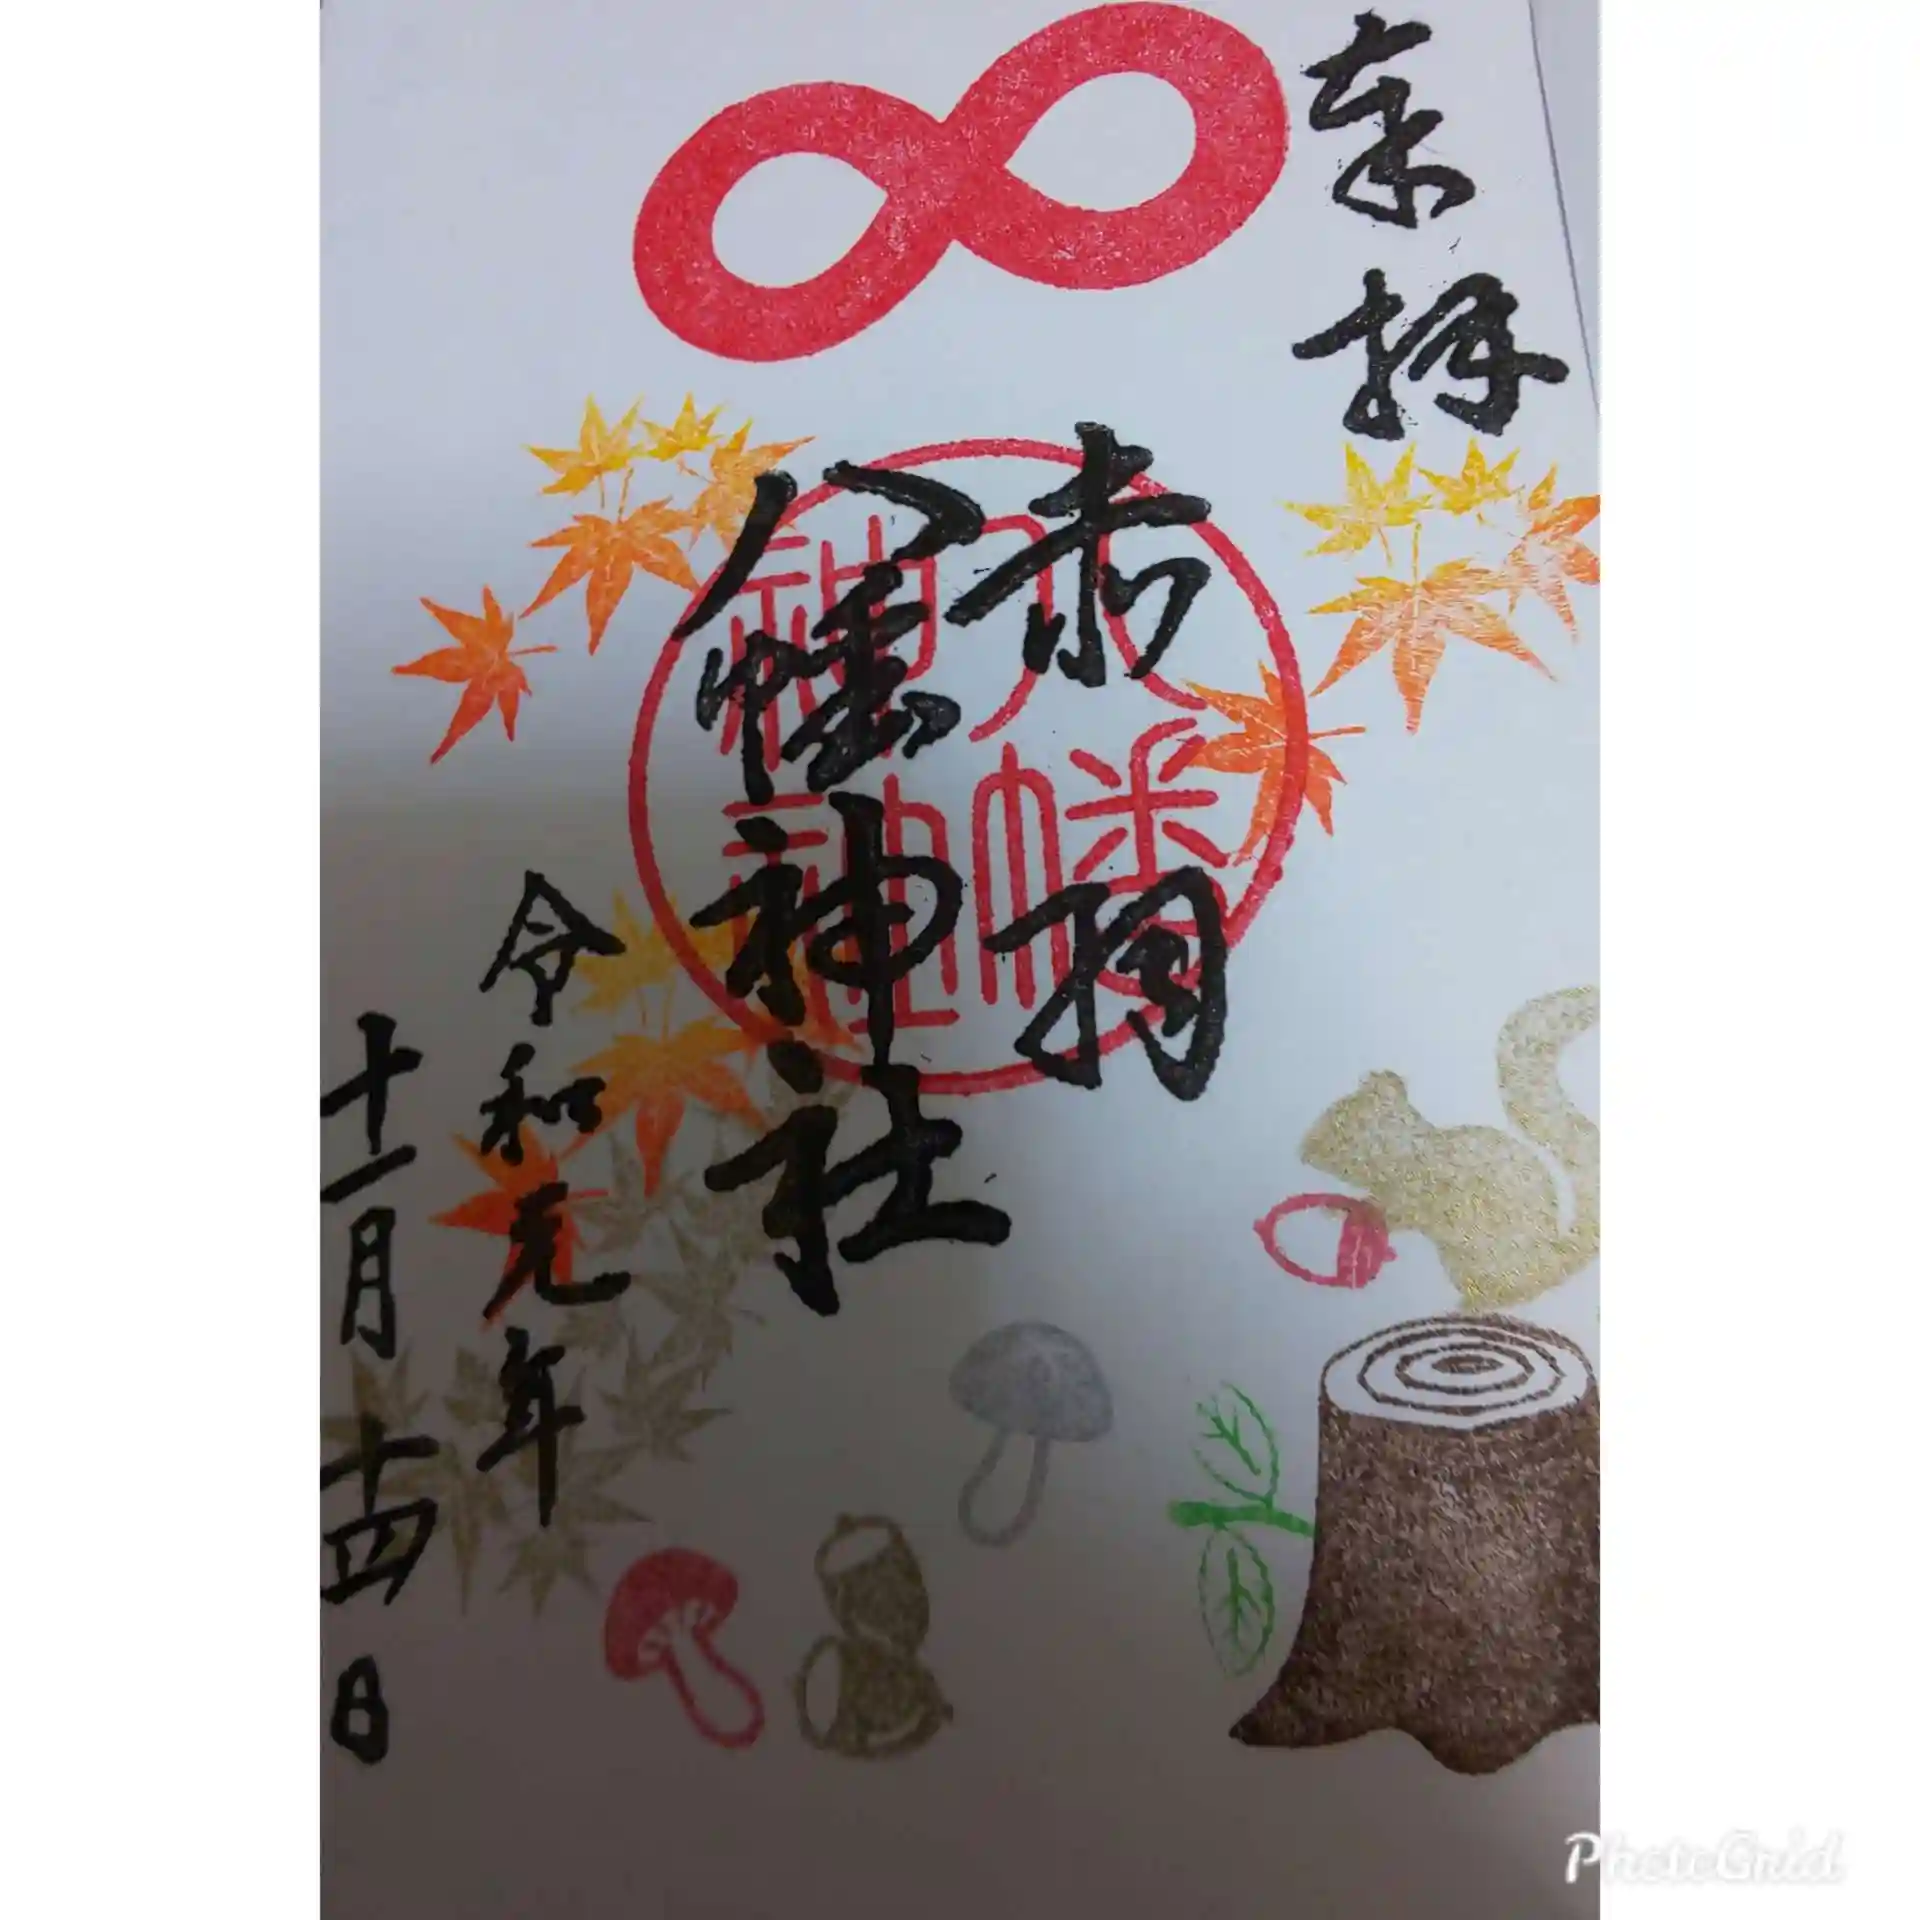 奉拝
赤羽
八幡神社
八幡
神社
令和元年
十一月十四日
PhotoGrid